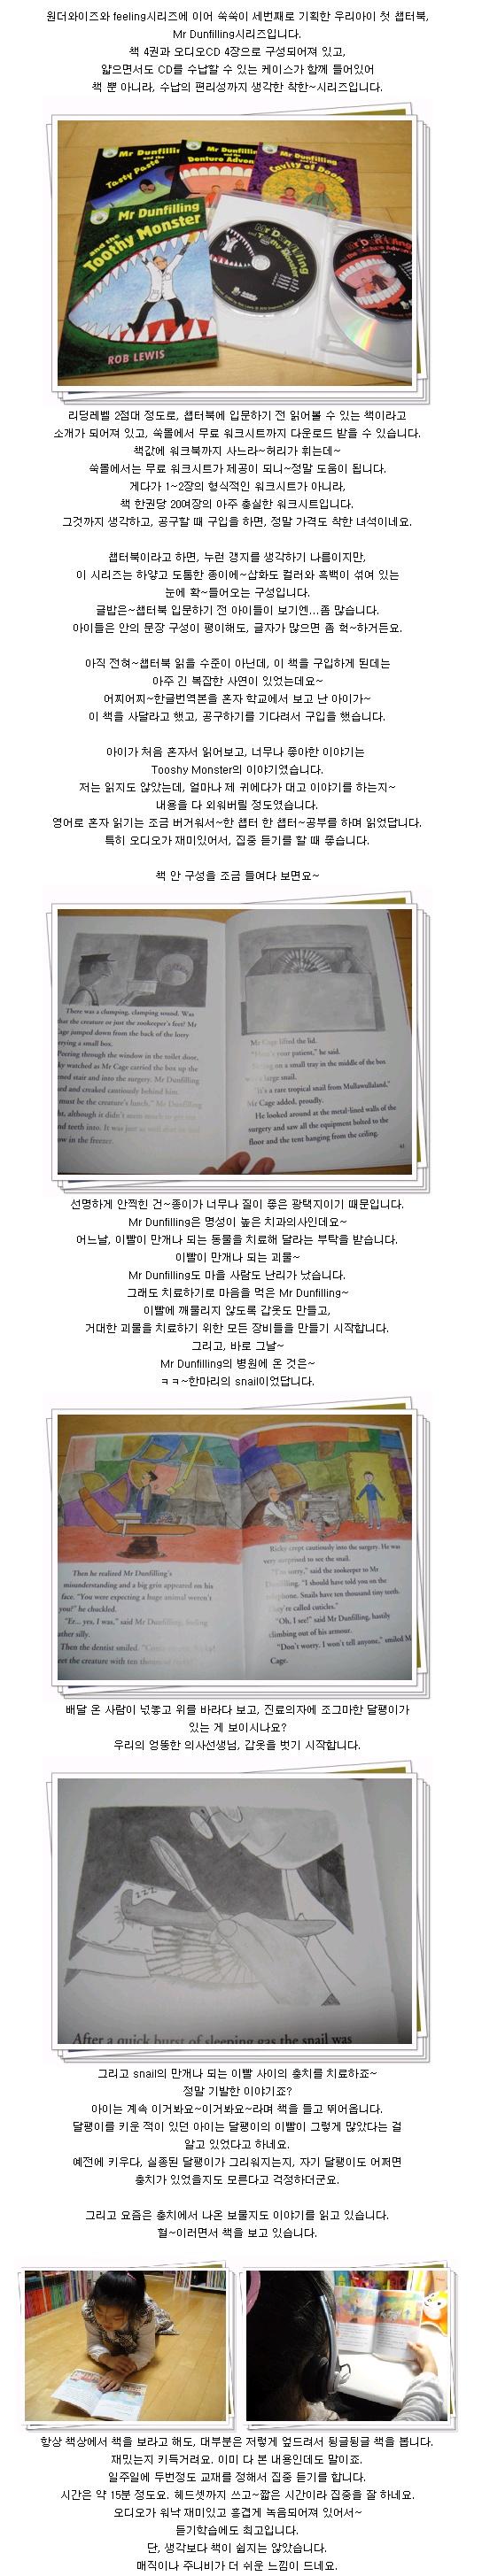 원더와이즈와 feeling시리즈에 이어 쑥쑥이 세번째로 기획한 우리아이 첫 챕터북,
Mr Dunfilling시리즈입니다.
책 4권과 오디오CD 4장으로 구성되어져 있고,
얇으면서도 CD를 수납할 수 있는 케이스가 함께 들어있어
책 뿐 아니라, 수납의 편리성까지 생각한 착한~시리즈입니다.
Mr Dunfilling
and the
Tasty Paste
Mr Dunfilling
and the
Denture Adven
Mr Dunfilling
and the
Cavity of Doom
Mr Dunfilling
and the
Toothy Monster
ROB LEWIS
리딩레벨 2점대 정도로, 챕터북에 입문하기 전 읽어볼 수 있는 책이라고
소개가 되어져 있고, 쑥몰에서 무료 워크시트까지 다운로드 받을 수 있습니다.
책값에 워크북까지 사느라~허리가 휘는데~
쑥몰에서는 무료 워크시트가 제공이 되니~정말 도움이 됩니다.
게다가 1~2장의 형식적인 워크시트가 아니라,
책 한권당 20여장의 아주 충실한 워크시트입니다.
그것까지 생각하고, 공구할 때 구입을 하면, 정말 가격도 착한 녀석이네요.
챕터북이라고 하면, 누런 갱지를 생각하기 나름이지만,
이 시리즈는 하얗고 도톰한 종이에~삽화도 컬러와 흑백이 섞여 있는
눈에 확~들어오는 구성입니다.
글밥은~챕터북 입문하기 전 아이들이 보기엔...좀 많습니다.
아이들은 안의 문장 구성이 평이해도, 글자가 많으면 좀 헉~하거든요.
아직 전혀~챕터북 읽을 수준이 아닌데, 이 책을 구입하게 된데는
아주 긴 복잡한 사연이 있었는데요~
어찌어찌~한글번역본을 혼자 학교에서 보고 난 아이가~
이 책을 사달라고 했고, 공구하기를 기다려서 구입을 했습니다.
아이가 처음 혼자서 읽어보고, 너무나 좋아한 이야기는
Tooshy Monster의 이야기였습니다.
저는 읽지도 않았는데, 얼마나 제 귀에다가 대고 이야기를 하는지~
내용을 다 외워버릴 정도였습니다.
영어로 혼자 읽기는 조금 버거워서~한 챕터 한 챕터~공부를 하며 읽었답니다.
특히 오디오가 재미있어서, 집중 듣기를 할 때 좋습니다.
책 안 구성을 조금 들여다 보면요~
There was a clumping, clamping sound. Was
that the creature or just the zookeeper's feet? Mr
Cage jumped down from the back of the lorry
rrying a small box.
Peering through the window in the toilet door,
ky watched as Mr Cage carried the box up the
and stair and into the surgery. Mr Dunfilling
ed and creaked cautiously behind him.
must be the creature's lunch,
ow in the freezer.
Mr Cage lifted the lid.
"Here's your patient," he said.
Sitting on a small tray in the middle of the box
was a large snail.
"It's a rare tropical snail from Mullawullaland,"
Mr Cage added, proudly.
He looked around at the metal-lined walls of the
surgery and saw all the equipment bolted to the
floor and the tent hanging from the ceiling.
선명하게 안찍힌 건~종이가 너무나 질이 좋은 광택지이기 때문입니다.
Mr Dunfilling은 명성이 높은 치과의사인데요~
어느날, 이빨이 만개나 되는 동물을 치료해 달라는 부탁을 받습니다.
이빨이 만개나 되는 괴물~
Mr Dunfilling도 마을 사람도 난리가 났습니다.
그래도 치료하기로 마음을 먹은 Mr Dunfilling~
이빨에 깨물리지 않도록 갑옷도 만들고,
거대한 괴물을 치료하기 위한 모든 장비들을 만들기 시작합니다.
그리고, 바로 그날~
Mr Dunfilling의 병원에 온 것은~
ㅋㅋ~한마리의 snail이었답니다.
Then he realized Mr Dunfilling's
misunderstanding and a big grin appeared on his
face. "You were expecting a huge animal weren't
you?" he chuckled.
"Er... yes, I was," said Mr Dunfilling, feeling
ather silly.
Then the dentist smiled.
eet the creature with ten thousand
Ricky crept cautiously into the surgery. He was
very surprised to see the snail.
"I'm sorry," said the zookeeper to Mr
Dunfilling. "I should have told you on the
telephone. Snails have ten thousand tiny teeth.
They're called cuticles."
"Oh, I see!" said Mr Dunfilling, hastily
climbing out of his armour.
"Don't worry. I won't tell anyone," smiled M
Cage.
배달 온 사람이 넋놓고 위를 바라다 보고, 진료의자에 조그마한 달팽이가
있는 게 보이시나요?
우리의 엉뚱한 의사선생님, 갑옷을 벗기 시작합니다.
zzz
After a quick burst of sleeping gas the snail was
그리고 snail의 만개나 되는 이빨 사이의 충치를 치료하죠~
정말 기발한 이야기죠?
아이는 계속 이거봐요~이거봐요~라며 책을 들고 뛰어옵니다.
달팽이를 키운 적이 있던 아이는 달팽이의 이빨이 그렇게 많았다는 걸
알고 있었다고 하네요.
예전에 키우다, 실종된 달팽이가 그리워지는지, 자기 달팽이도 어쩌면
충치가 있었을지도 모른다고 걱정하더군요.
그리고 요즘은 충치에서 나온 보물지도 이야기를 읽고 있습니다.
헐~이러면서 책을 보고 있습니다.
항상 책상에서 책을 보라고 해도, 대부분은 저렇게 엎드려서 뒹글뒹글 책을 봅니다.
재밌는지 키득거려요. 이미 다 본 내용인데도 말이죠.
일주일에 두번정도 교재를 정해서 집중 듣기를 합니다.
시간은 약 15분 정도요. 헤드셋까지 쓰고~짧은 시간이라 집중을 잘 하네요.
오디오가 워낙 재미있고 흥겹게 녹음되어져 있어서~
듣기학습에도 최고입니다.
단, 생각보다 책이 쉽지는 않았습니다.
매직이나 주니비가 더 쉬운 느낌이 드네요.